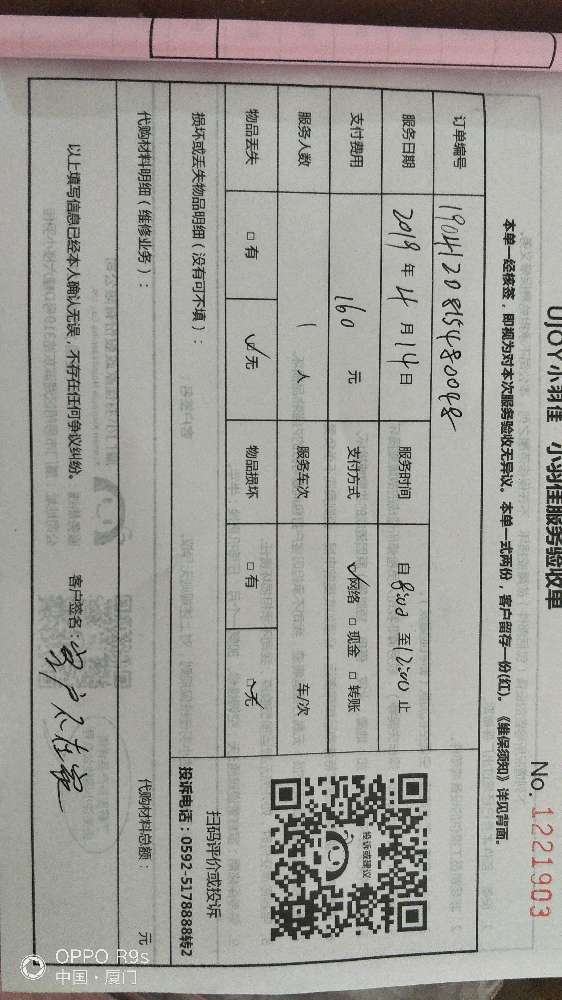 UJOY小羽佳 小羽佳服务验收单
No. 1221903
本单一经核签，即视为对本次服务验收无异议。本单一式两份，客户留存一份(红)。《维保须知》详见背面。
订单编号 1904120815480098
服务日期 2019 年 4 月 14 日 服务时间 自 8:00 至 12:00 止
支付费用 160 元 支付方式 ☑网络 □现金 □转账
服务人数 1 人 服务车次 车/次
物品丢失 □有 ☑无 物品损坏 □有 ☑无
投诉或建议
扫码评价或投诉
投诉电话：0592-5178888转2
损坏或丢失物品明细（没有可不填）：
代购材料明细（维修业务）：
代购材料总额： 元
以上填写信息已经本人确认无误，不存在任何争议纠纷。 客户签名：客户不在家
OPPO R9s
中国·厦门